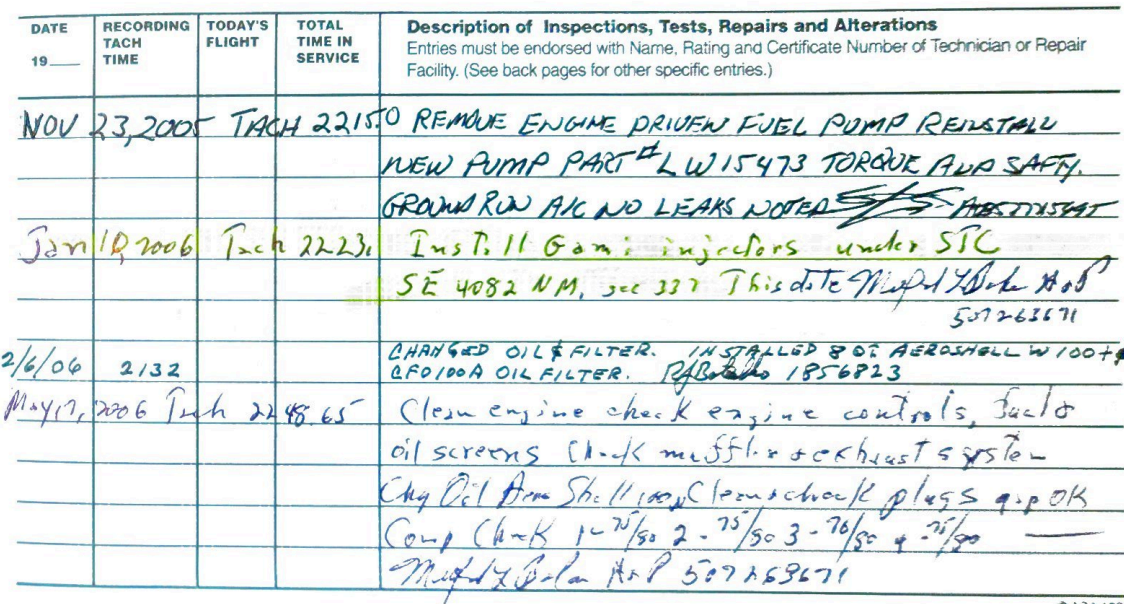 DATE
19
RECORDING TACH TIME
TODAY'S FLIGHT
TOTAL TIME IN SERVICE
Description of Inspections, Tests, Repairs and Alterations
Entries must be endorsed with Name, Rating and Certificate Number of Technician or Repair
Facility. (See back pages for other specific entries.)
NOV 23,2005 TACH 2215.0 REMOVE ENGINE DRIVEN FUEL PUMP REINSTALL
NEW PUMP PART # LW15473 TORQUE AND SAFTY.
GROUND RUN A/C NO LEAKS NOTED
Jan 10, 2006 Tach 2223. Install Gami injectors under STC
SE 4082 NM, see 337 This date A&P
507263671
2/6/06 2132 CHANGED OIL & FILTER. INSTALLED 8 QT AEROSHELL W100+ &
CFO100A OIL FILTER. 1856823
May 17, 2006 Tach 2248.65 Clean engine check engine controls, fuel &
oil screens Check muffler & exhaust system
Chg Oil Aero Shell 100, Clean & check plugs gap OK
Comp Check 1-75/80 2-75/80 3-76/80 4-75/80
A&P 507263671